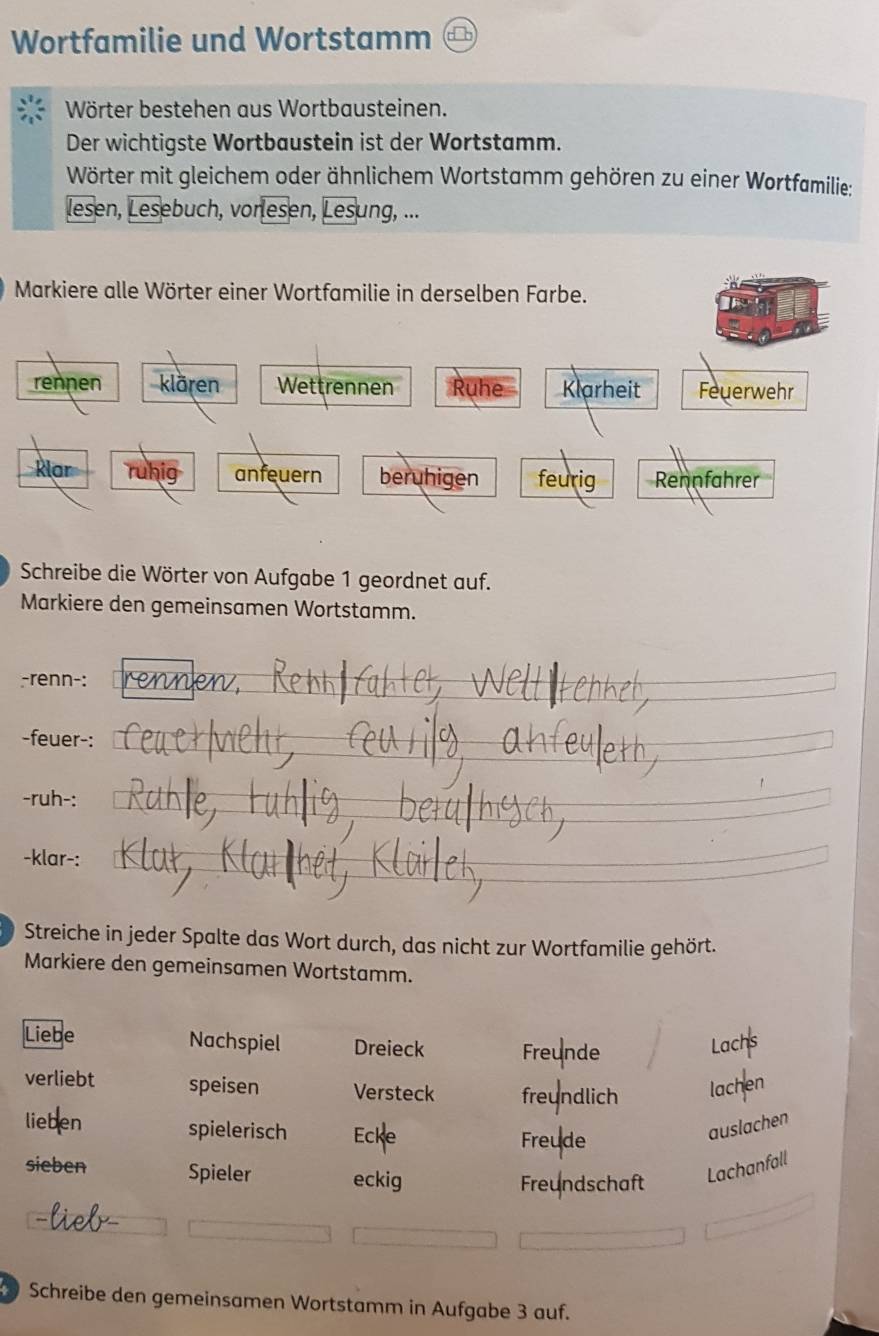 Wortfamilie und Wortstamm
Wörter bestehen aus Wortbausteinen.
Der wichtigste Wortbaustein ist der Wortstamm.
Wörter mit gleichem oder ähnlichem Wortstamm gehören zu einer Wortfamilie:
lesen, Lesebuch, vorlesen, Lesung, ...
Markiere alle Wörter einer Wortfamilie in derselben Farbe.
rennen klären Wettrennen Ruhe Klarheit Feuerwehr
klar ruhig anfeuern beruhigen feurig Rennfahrer
Schreibe die Wörter von Aufgabe 1 geordnet auf.
Markiere den gemeinsamen Wortstamm.
-renn-: rennen, Rennfahrer, Wettrennen,
-feuer-: feuerwehr, feurig, anfeuern,
-ruh-: Ruhe, ruhig, beruhigen,
-klar-: Klar, Klarheit, Klären,
Streiche in jeder Spalte das Wort durch, das nicht zur Wortfamilie gehört.
Markiere den gemeinsamen Wortstamm.
Liebe Nachspiel Dreieck Freunde Lachs
verliebt speisen Versteck freundlich lachen
lieben spielerisch Ecke Freude auslachen
sieben Spieler eckig Freundschaft Lachanfall
-lieb-
4 Schreibe den gemeinsamen Wortstamm in Aufgabe 3 auf.